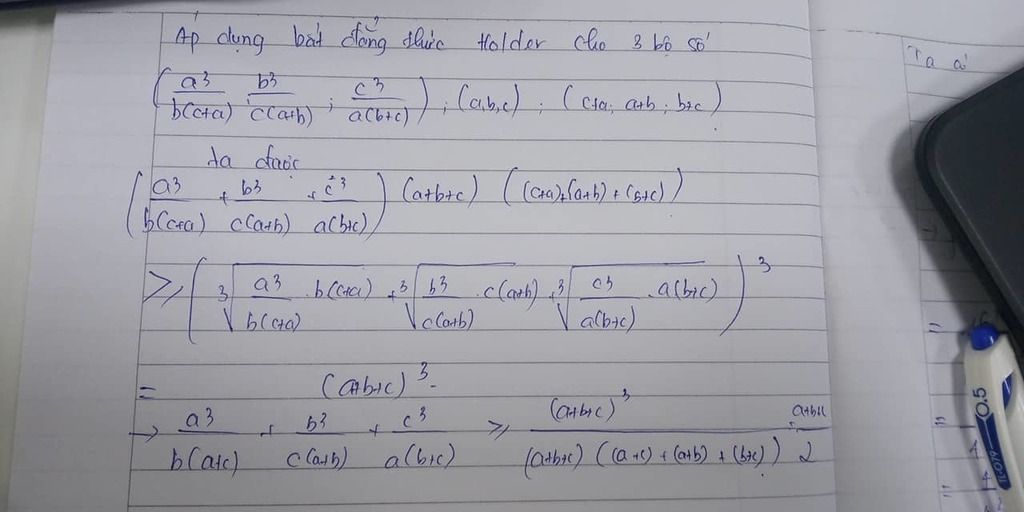 Áp dụng bất đẳng thức Holder cho 3 bộ số
(a³/b(c+a) ; b³/c(a+b) ; c³/a(b+c)) ; (a,b,c) ; (c+a; a+b; b+c)
ta được
(a³/b(c+a) + b³/c(a+b) + c³/a(b+c)) (a+b+c) ((c+a)+(a+b)+(b+c))
≥ (∛(a³/b(c+a) . b(c+a)) + ∛(b³/c(a+b) . c(a+b)) + ∛(c³/a(b+c) . a(b+c)))³
= (a+b+c)³.
→ a³/b(a+c) + b³/c(a+b) + c³/a(b+c) ≥ (a+b+c)³/(a+b+c)((a+c)+(a+b)+(b+c)) = a+b+c/2
Ta có
=
=
=
0.5